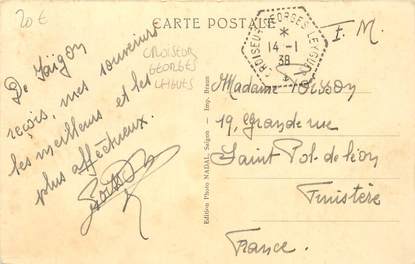 20€
CARTE POSTALE
F. M.
CROISEUR GEORGES LEYGUES
*
14-1
38
CROISEUR
GEORGES
LEYGUES
De Saïgon
reçois, mes souvenirs
les meilleurs et les
plus affectueux.
Madame
19, Grande rue
Saint Pol-de-Léon
Finistère
France.
Edition Photo NADAL, Saïgon - Imp. Braun